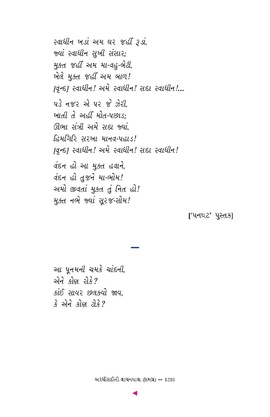 સ્વાધીન ખડાં અમ ઘર જહીં રૂડાં,
જ્યાં સ્વાધીન સુખી સંસાર;
મુક્ત જહીં અમ મા-વહુ-બેટી,
ખેલે મુક્ત જહીં અમ બાળ!
(વૃન્દ) સ્વાધીન! અમે સ્વાધીન! સદા સ્વાધીન!...
પડે નજર એ પર જે ઝેરી,
ખાતી તે અહીં મોત-પછાડ;
ઊભા સંત્રી અમે સદા જ્યાં,
હિમગિરિ સરખા માનવ-પહાડ!
(વૃન્દ) સ્વાધીન! અમે સ્વાધીન! સદા સ્વાધીન!
વંદન હો આ મુક્ત હવાને,
વંદન હો તુજને મા-ભોમ!
અમો જીવતાં મુક્ત તું નિત હો!
મુક્ત નભે જ્યાં સૂરજ-સોમ!
['પનઘટ' પુસ્તક]
આ પૂનમની ચમકે ચાંદની,
એને કોણ રોકે?
કાંઈ સાયર છલક્યો જાય,
કે એને કોણ ટોકે?
અરધી સદીની વાચનયાત્રા